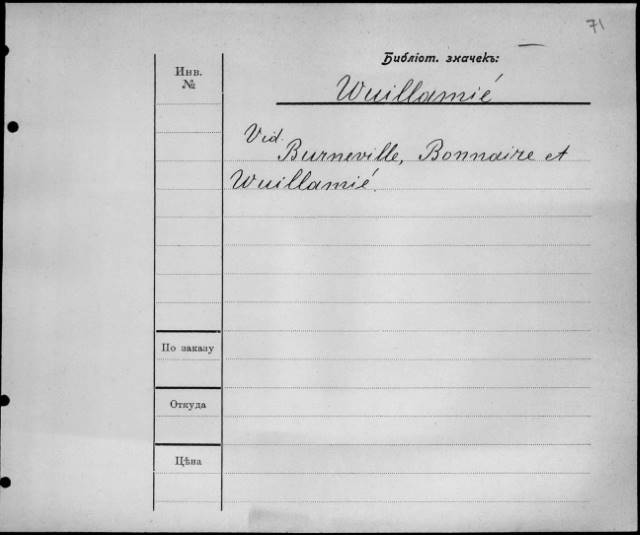 71
Библіот. значекъ:
Инв.
№
Wuillamié
Vid.
Burneville, Bonnaire et
Wuillamié.
По заказу
Откуда
Цѣна